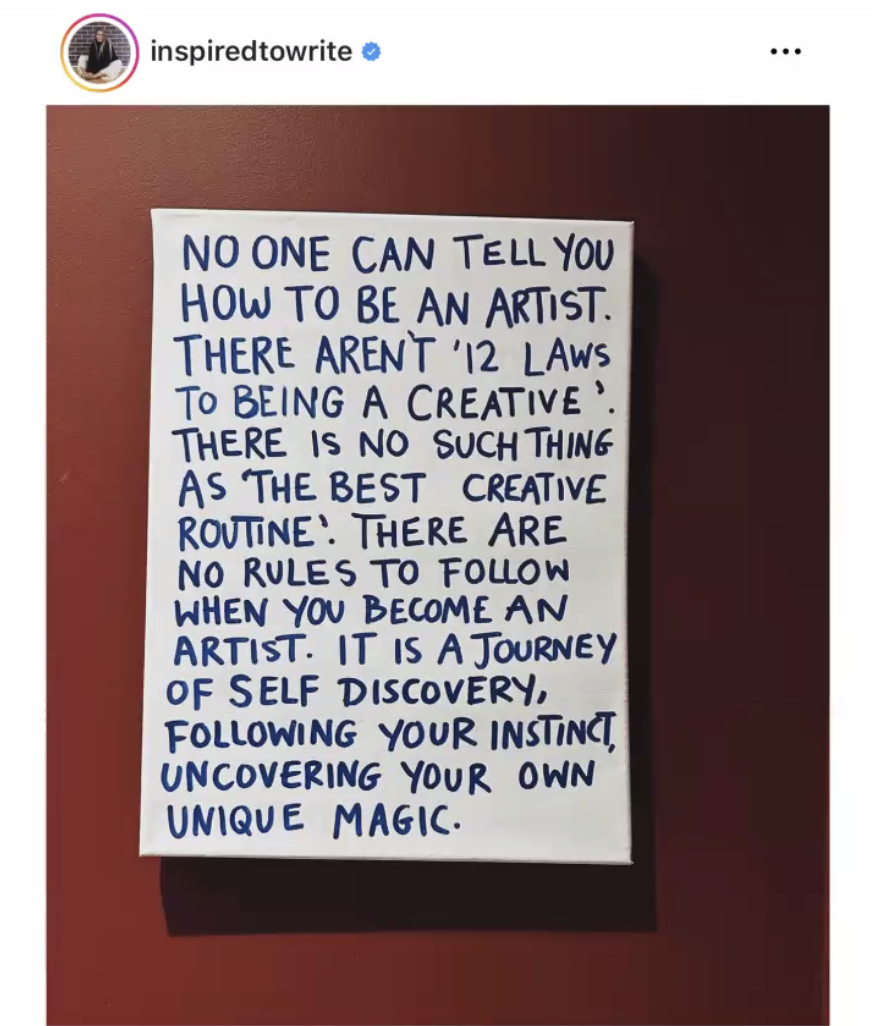 inspiredtowrite
NO ONE CAN TELL YOU
HOW TO BE AN ARTIST.
THERE AREN'T '12 LAWS
TO BEING A CREATIVE'.
THERE IS NO SUCH THING
AS 'THE BEST CREATIVE
ROUTINE'. THERE ARE
NO RULES TO FOLLOW
WHEN YOU BECOME AN
ARTIST. IT IS A JOURNEY
OF SELF DISCOVERY,
FOLLOWING YOUR INSTINCT,
UNCOVERING YOUR OWN
UNIQUE MAGIC.